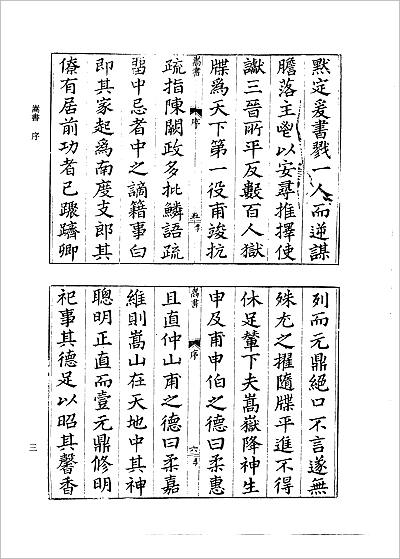 默定爰書戮一人而逆謀
膽落主㘴以安尋推擇使
讞三晉所平反數百人獄
牒爲天下第一役甫竣抗
嵩書
序
五
疏指陳闕政多批鱗語疏
畱中忌者中之謫籍事白
即其家起爲南度支郎其
僚有居前功者已躐躋卿
列而元鼎絕口不言遂無
殊尤之擢隨牒平進不得
休足輦下夫嵩嶽降神生
申及甫申伯之德曰柔惠
嵩書
序
六
且直仲山甫之德曰柔嘉
維則嵩山在天地中其神
聰明正直而壹元鼎修明
祀事其德足以昭其馨香
嵩書 序
三